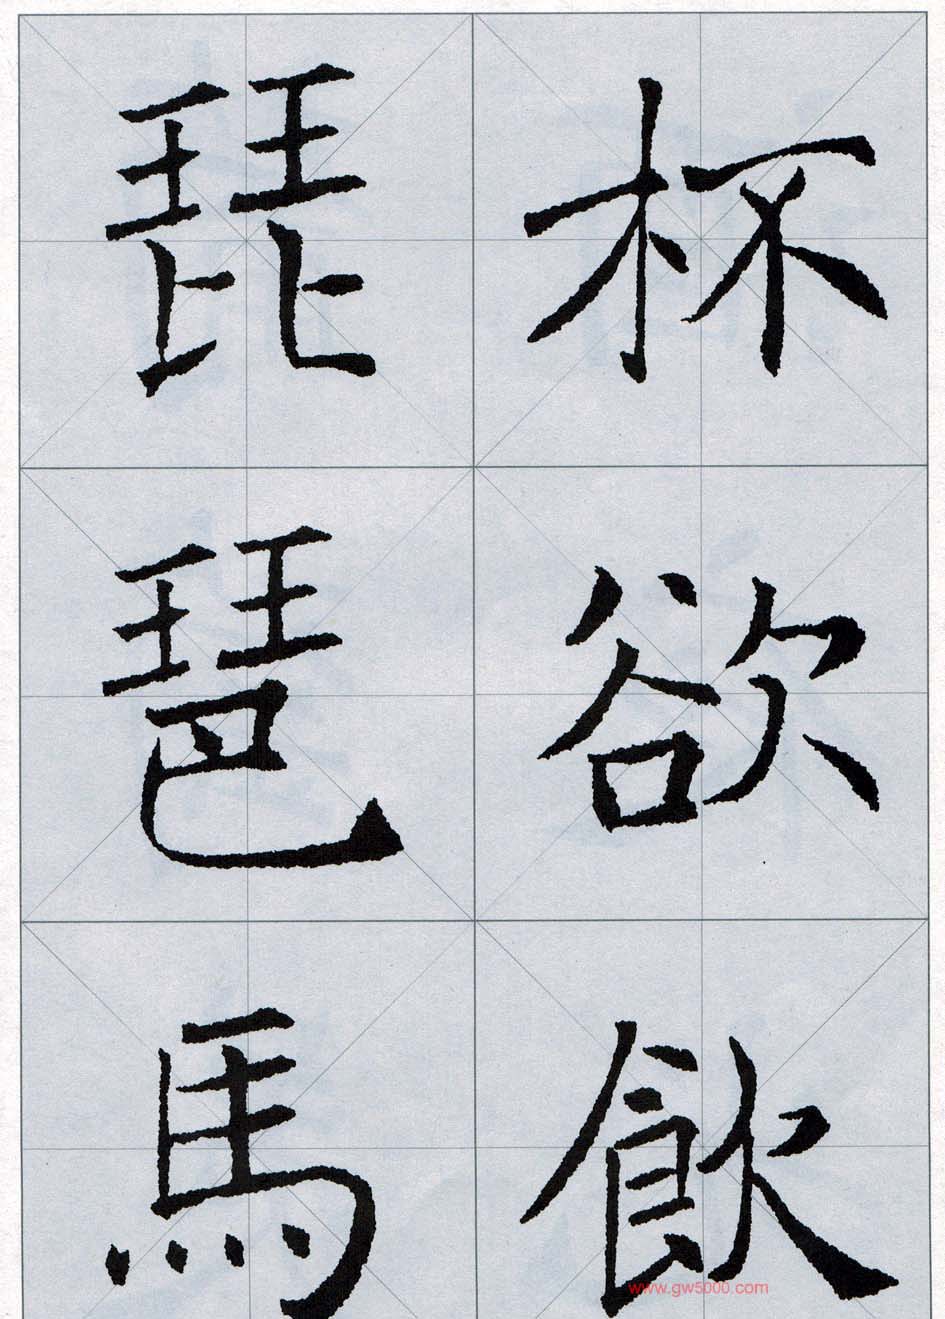 杯欲飲
琵琶馬
www.gw5000.com